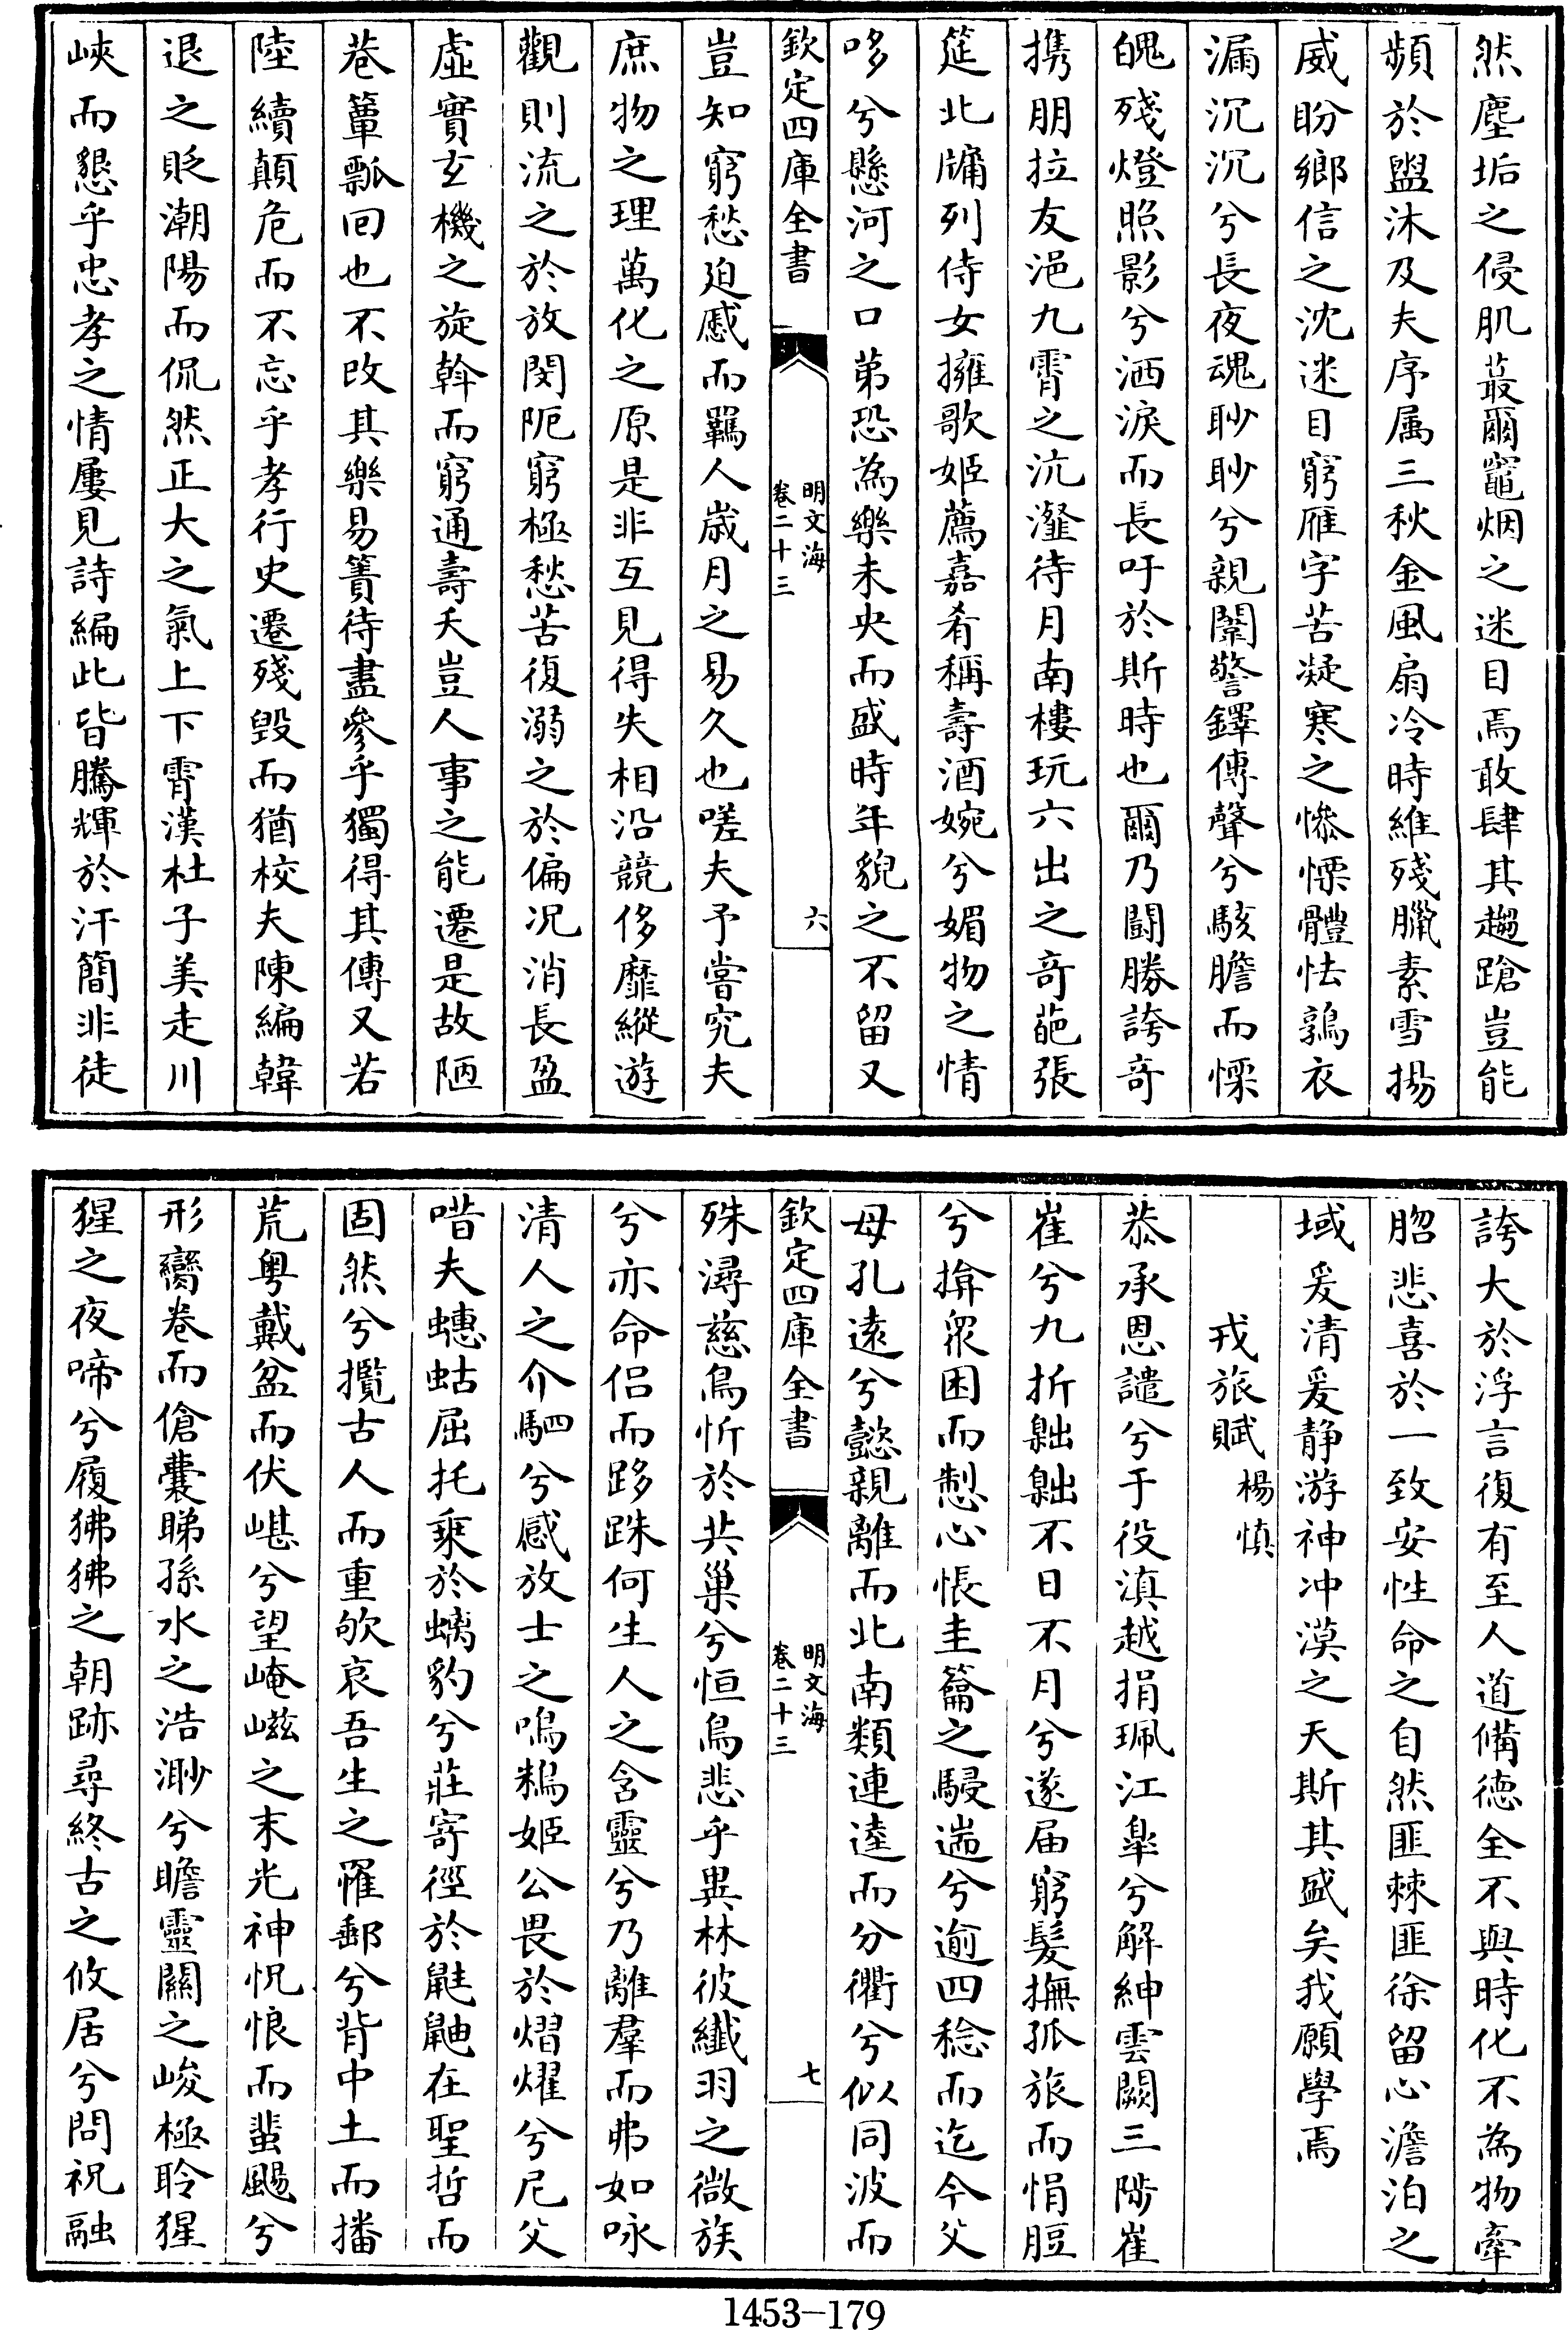 然塵垢之侵肌蕞爾竈烟之迷目焉敢肆其趨蹌豈能
頻於盥沐及夫序属三秋金風扇冷時維殘臘素雪揚
威盼鄉信之沈迷目窮雁字苦凝寒之慘慄體怯鶉衣
漏沉沉兮長夜魂眇眇兮親闈警鐸傳聲兮駭膽而慄
魄殘燈照影兮洒淚而長吁於斯時也爾乃鬭勝誇奇
携朋拉友浥九霄之沆瀣待月南樓玩六出之奇葩張
筵北牖列侍女擁歌姬薦嘉肴稱壽酒婉兮媚物之情
哆兮懸河之口苐恐為樂未央而盛時年貌之不留又
欽定四庫全書
明文海
卷二十三
六
豈知窮愁廹慼而羈人歲月之易久也嗟夫予嘗究夫
庶物之理萬化之原是非互見得失相沿競侈靡縱遊
觀則流之於放閔阨窮極愁苦復溺之於偏況消長盈
虛實玄機之旋斡而窮通壽夭豈人事之能遷是故陋
巷簞瓢回也不改其樂易簀待盡參乎獨得其傳又若
陸續顛危而不忘乎孝行史遷殘毀而猶校夫陳編韓
退之貶潮陽而侃然正大之氣上下霄漢杜子美走川
峽而懇乎忠孝之情屢見詩編此皆騰輝於汗簡非徒
誇大於浮言復有至人道備德全不與時化不為物牽
脗悲喜於一致安性命之自然匪棘匪徐留心澹泊之
域爰清爰静游神冲漠之天斯其盛矣我願學焉
戎旅賦 楊慎
恭承恩譴兮于役滇越捐珮江臯兮解紳雲闕三陟崔
崔兮九折𦤞𦤞不日不月兮遂届窮髮撫孤旅而悁脰
兮揜衆困而㓼心悵圭籥之駸遄兮逾四稔而迄今父
母孔遠兮懿親離而北南類連逵而分衢兮似同波而
欽定四庫全書
明文海
卷二十三
七
殊潯慈鳥忻於共巢兮恒鳥悲乎異林彼纖羽之微族
兮亦命侣而跢跦何生人之含靈兮乃離羣而弗如咏
清人之介駟兮感放士之嗚鵂姬公畏於熠燿兮尼父
唶夫蟪蛄屈托乘於螭豹兮莊寄徑於鼪鼬在聖哲而
固然兮攬古人而重欷哀吾生之罹郵兮背中土而播
荒粤戴盆而伏嵁兮望崦嵫之末光神怳悢而蜚颺兮
形臠卷而傖囊睇孫水之浩渺兮瞻靈關之峻極聆猩
猩之夜啼兮履狒狒之朝跡尋終古之攸居兮問祝融
1453—179